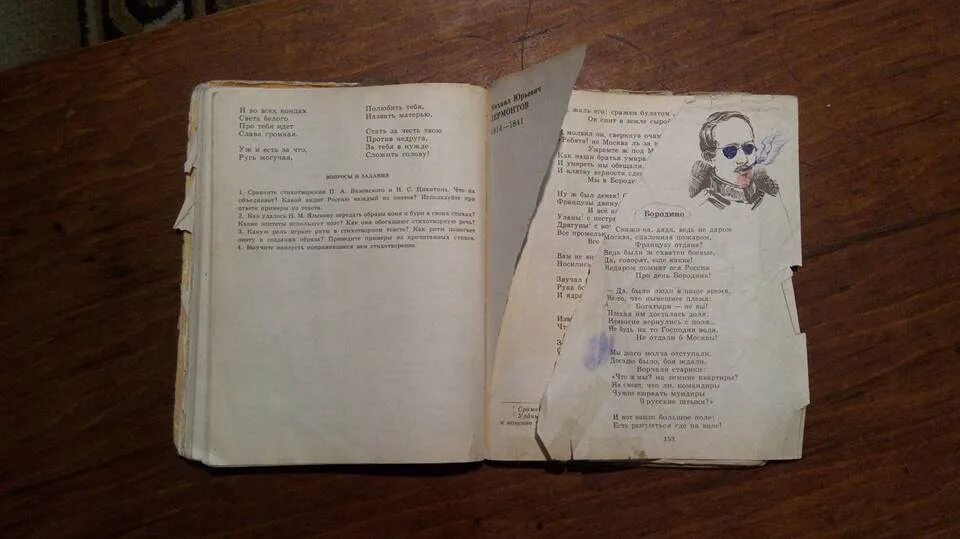 И во всех концах
Света белого
Про тебя идет
Слава громкая.
Уж и есть за что,
Русь могучая,
Полюбить тебя,
Назвать матерью,
Стать за честь твою
Против недруга,
За тебя в нужде
Сложить голову!
ВОПРОСЫ И ЗАДАНИЯ
1. Сравните стихотворения П. А. Вяземского и И. С. Никитина. Что их
объединяет? Какой видит Россию каждый из поэтов? Используйте в ответе
примеры из текста.
2. Как удалось Н. М. Языкову передать образы коня и бури в своих стихах?
Какие эпитеты использует поэт? Как они обогащают стихотворную речь?
3. Какую роль играет ритм в стихотворном тексте? Как ритм помогает
поэту в создании образа? Приведите примеры из прочитанных стихов.
4. Выучите наизусть понравившееся вам стихотворение.
Михаил Юрьевич
ЛЕРМОНТОВ
1814—1841
жаль его: сражен булатом
Он спит в земле сырой
молвил он, сверкнув очами
«Ребята! не Москва ль за
Умремте ж под М
Как наши братья умира
И умереть мы обещали
И клятву верности сдер
Мы в Бород
Ну ж был денек!
Французы двину
И всё
Уланы с пестры
Драгуны с ко
Все промельк
Все
Вам не ви
Носились
Звучал
Рука бо
И ядра
Изв
Чт
З
Сраж
Уланы
и конские
Бородино
— Скажи-ка, дядя, ведь не даром
Москва, спаленная пожаром,
Французу отдана?
Ведь были ж схватки боевые,
Да, говорят, еще какие!
Недаром помнит вся Россия
Про день Бородина!
— Да, были люди в наше время,
Не то, что нынешнее племя:
Богатыри — не вы!
Плохая им досталась доля:
Немногие вернулись с поля...
Не будь на то Господня воля,
Не отдали б Москвы!
Мы долго молча отступали,
Досадно было, боя ждали,
Ворчали старики:
«Что ж мы? на зимние квартиры?
Не смеют, что ли, командиры
Чужие изорвать мундиры
О русские штыки?»
И вот нашли большое поле:
Есть разгуляться где на воле!
153